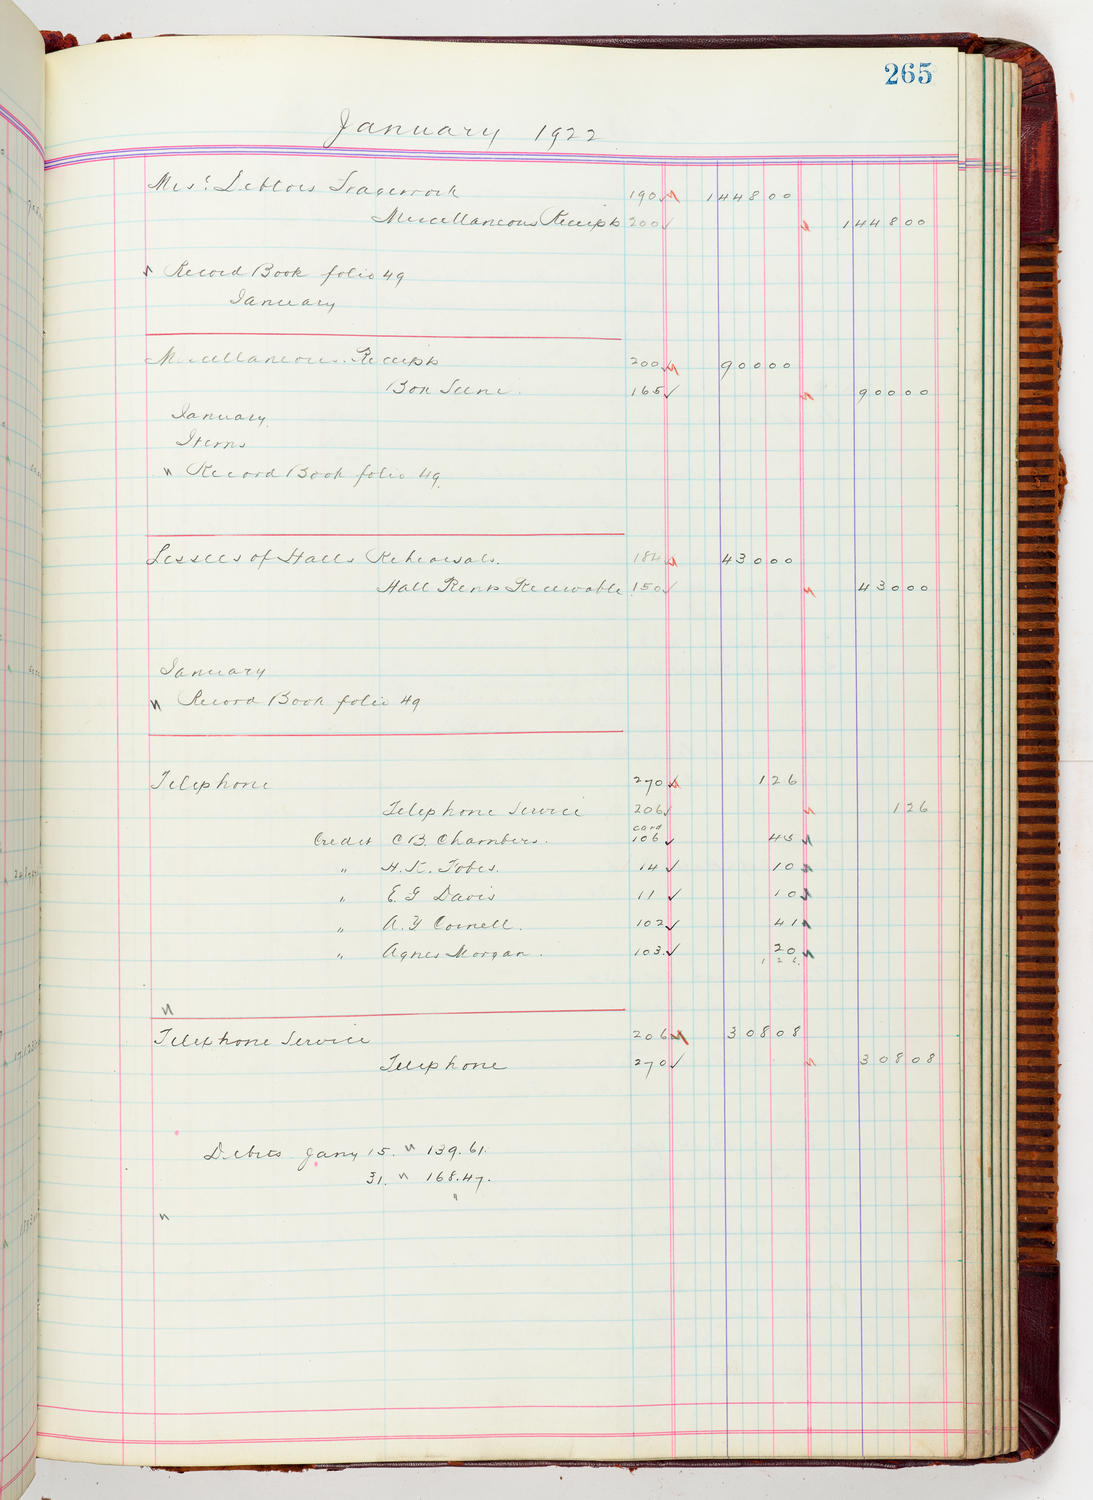 265
January 1922
190 144800
Miscellaneous Receipts 200 144800
Record Book folio 49
January
Miscellaneous Receipts 200 90000
165 90000
January
Items
" Record Book folio 49
Lessees of Halls Rehearsals. 184 43000
Hall Rents Receivable 150 43000
January
" Record Book folio 49
Telephone 270 126
Telephone Service 206 126
card
Credit C B. Chambers. 106 45
" H. K. Fobes. 14 10
" E G Davis 11 10
" A. Y Cornell. 102 41
" Agnes Morgan. 103 20
126
Telephone Service 206 30808
Telephone 270 30808
Debits Jany 15. " 139.61.
31. " 168.47.